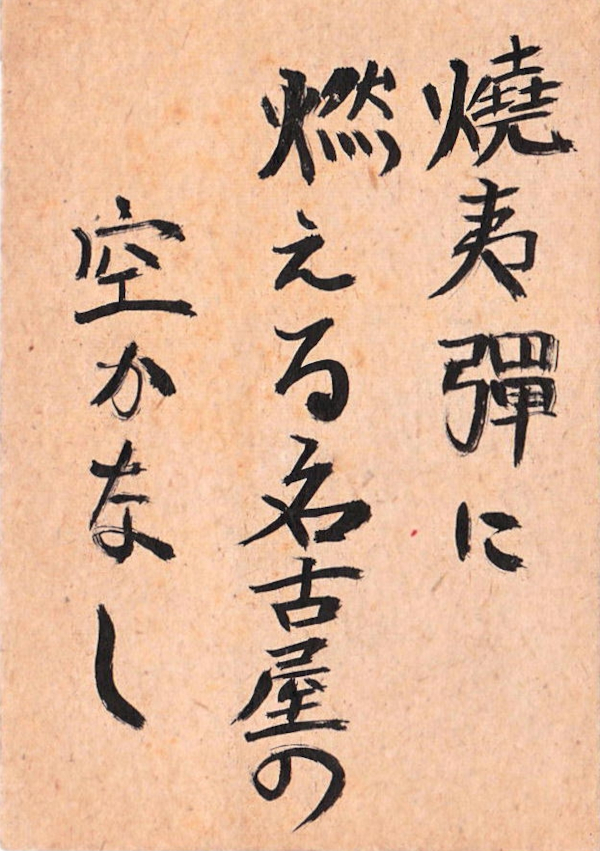 燒夷彈に
燃える名古屋の
空かなし